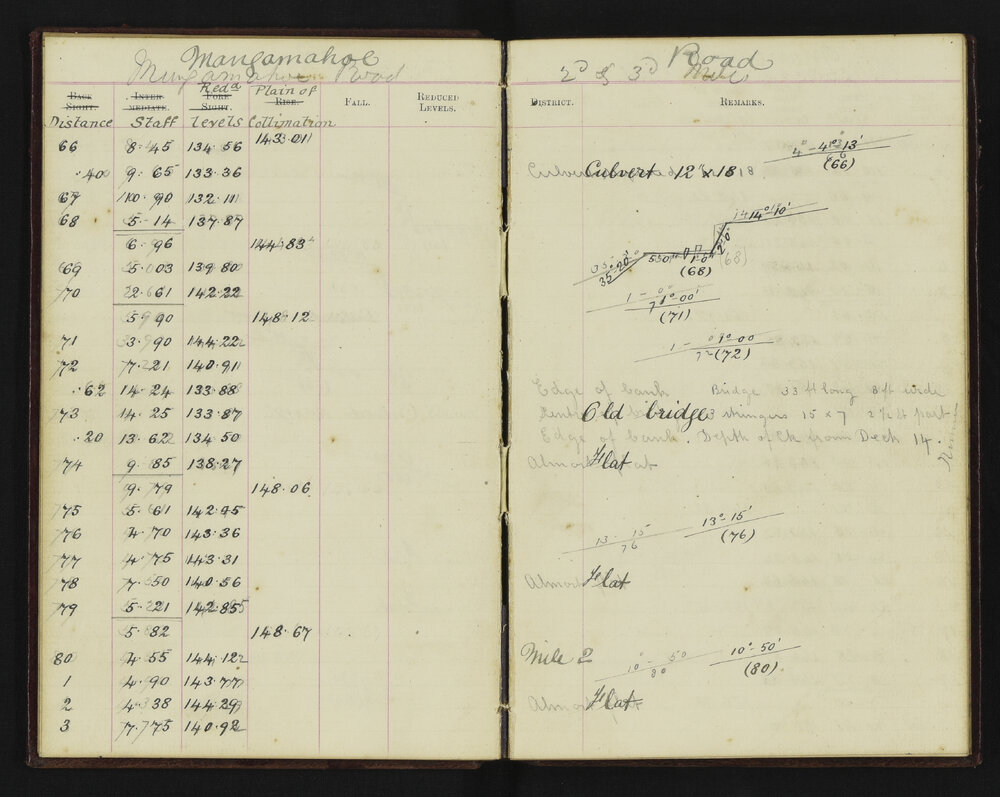 Mangamahoe Road
Mungamahoe Road 2d & 3d Miles
BACK SIGHT. INTERMEDIATE. FORE SIGHT. RISE. FALL. REDUCED LEVELS. DISTRICT. REMARKS.
Distance Staff Redd levels Plain of Collimation
66 8·45 134·56 143·01 4°-41°·13' (66)
·40 9·65 133·36 Culvert 12" x 18
67 10·90 132·11
68 5·14 137·87 14°10'
6·96 144·83 35·20 550" 1·0" 2'0" (68)
69 5·03 139·80
70 2·61 142·22 1°·00' (71)
5·90 148·12
71 3·90 144·22 1°·00 (72)
72 7·21 140·91
·62 14·24 133·88 Edge of bank Bridge 33 ft long 8 ft wide
73 14·25 133·87 Old bridge 3 stringers 15 x 7 2½ ft part
·20 13·62 134·50 Edge of bank. Depth of Ck from Deck 14·
74 9·85 138·27 Almost Flat
9·79 148·06
75 5·61 142·95
76 4·70 143·36 13 - 15 76 13°-15' (76)
77 4·75 143·31
78 7·50 140·56 Almost Flat
79 5·21 142·85
5·82 148·67
80 4·55 144·12 Mile 2 10 - 50 80 10°-50' (80)
1 4·90 143·77
2 4·38 144·29 Almost Flat
3 7·75 140·92